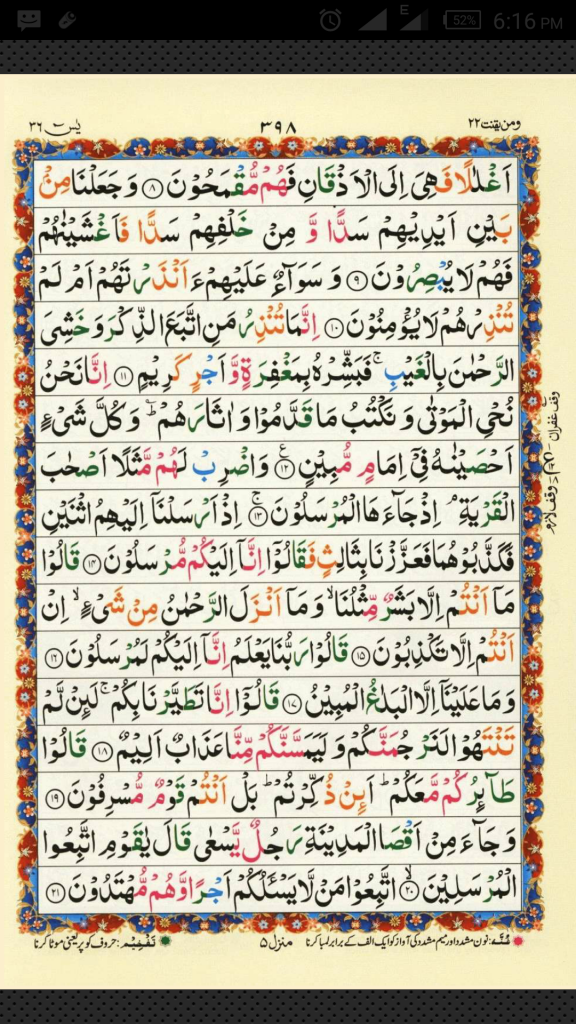 E 52% 6:16 PM
ومن یقنت ۲۲
۳۹۸
یٰسٓ ۳۶
اَغْلٰلًا فَهِیَ اِلَى الْاَذْقَانِ فَهُمْ مُّقْمَحُوْنَ ﴿۸﴾ وَ جَعَلْنَا مِنْۢ
بَیْنِ اَیْدِیْهِمْ سَدًّا وَّ مِنْ خَلْفِهِمْ سَدًّا فَاَغْشَیْنٰهُمْ
فَهُمْ لَا یُبْصِرُوْنَ ﴿۹﴾ وَ سَوَآءٌ عَلَیْهِمْ ءَاَنْذَرْتَهُمْ اَمْ لَمْ
تُنْذِرْهُمْ لَا یُؤْمِنُوْنَ ﴿۱۰﴾ اِنَّمَا تُنْذِرُ مَنِ اتَّبَعَ الذِّكْرَ وَ خَشِیَ
الرَّحْمٰنَ بِالْغَیْبِ ۚ فَبَشِّرْهُ بِمَغْفِرَةٍ وَّ اَجْرٍ كَرِیْمٍ ﴿۱۱﴾ اِنَّا نَحْنُ
نُحْیِ الْمَوْتٰى وَ نَكْتُبُ مَا قَدَّمُوْا وَ اٰثَارَهُمْ ؕ وَ كُلَّ شَیْءٍ
اَحْصَیْنٰهُ فِیْۤ اِمَامٍ مُّبِیْنٍ ﴿۱۲﴾ وَ اضْرِبْ لَهُمْ مَّثَلًا اَصْحٰبَ
الْقَرْیَةِ ۘ اِذْ جَآءَهَا الْمُرْسَلُوْنَ ﴿۱۳﴾ اِذْ اَرْسَلْنَاۤ اِلَیْهِمُ اثْنَیْنِ
فَكَذَّبُوْهُمَا فَعَزَّزْنَا بِثَالِثٍ فَقَالُوْۤا اِنَّاۤ اِلَیْكُمْ مُّرْسَلُوْنَ ﴿۱۴﴾ قَالُوْا
مَاۤ اَنْتُمْ اِلَّا بَشَرٌ مِّثْلُنَا ۙ وَ مَاۤ اَنْزَلَ الرَّحْمٰنُ مِنْ شَیْءٍ ۙ اِنْ
اَنْتُمْ اِلَّا تَكْذِبُوْنَ ﴿۱۵﴾ قَالُوْا رَبُّنَا یَعْلَمُ اِنَّاۤ اِلَیْكُمْ لَمُرْسَلُوْنَ ﴿۱۶﴾
وَ مَا عَلَیْنَاۤ اِلَّا الْبَلٰغُ الْمُبِیْنُ ﴿۱۷﴾ قَالُوْۤا اِنَّا تَطَیَّرْنَا بِكُمْ ۚ لَىِٕنْ لَّمْ
تَنْتَهُوْا لَنَرْجُمَنَّكُمْ وَ لَیَمَسَّنَّكُمْ مِّنَّا عَذَابٌ اَلِیْمٌ ﴿۱۸﴾ قَالُوْا
طَآىِٕرُكُمْ مَّعَكُمْ ؕ اَىِٕنْ ذُكِّرْتُمْ ؕ بَلْ اَنْتُمْ قَوْمٌ مُّسْرِفُوْنَ ﴿۱۹﴾
وَ جَآءَ مِنْ اَقْصَا الْمَدِیْنَةِ رَجُلٌ یَّسْعٰى قَالَ یٰقَوْمِ اتَّبِعُوا
الْمُرْسَلِیْنَ ﴿۲۰﴾ اتَّبِعُوْا مَنْ لَّا یَسْـَٔلُكُمْ اَجْرًا وَّ هُمْ مُّهْتَدُوْنَ ﴿۲۱﴾
وقف غفران
وقف لازم
غُنَّہ: نون مشدد اور میم مشدد کی آواز کو ایک الف کے برابر لمبا کرنا
منزل ۵
تفخیم: حروف کو پُر یعنی موٹا کرنا